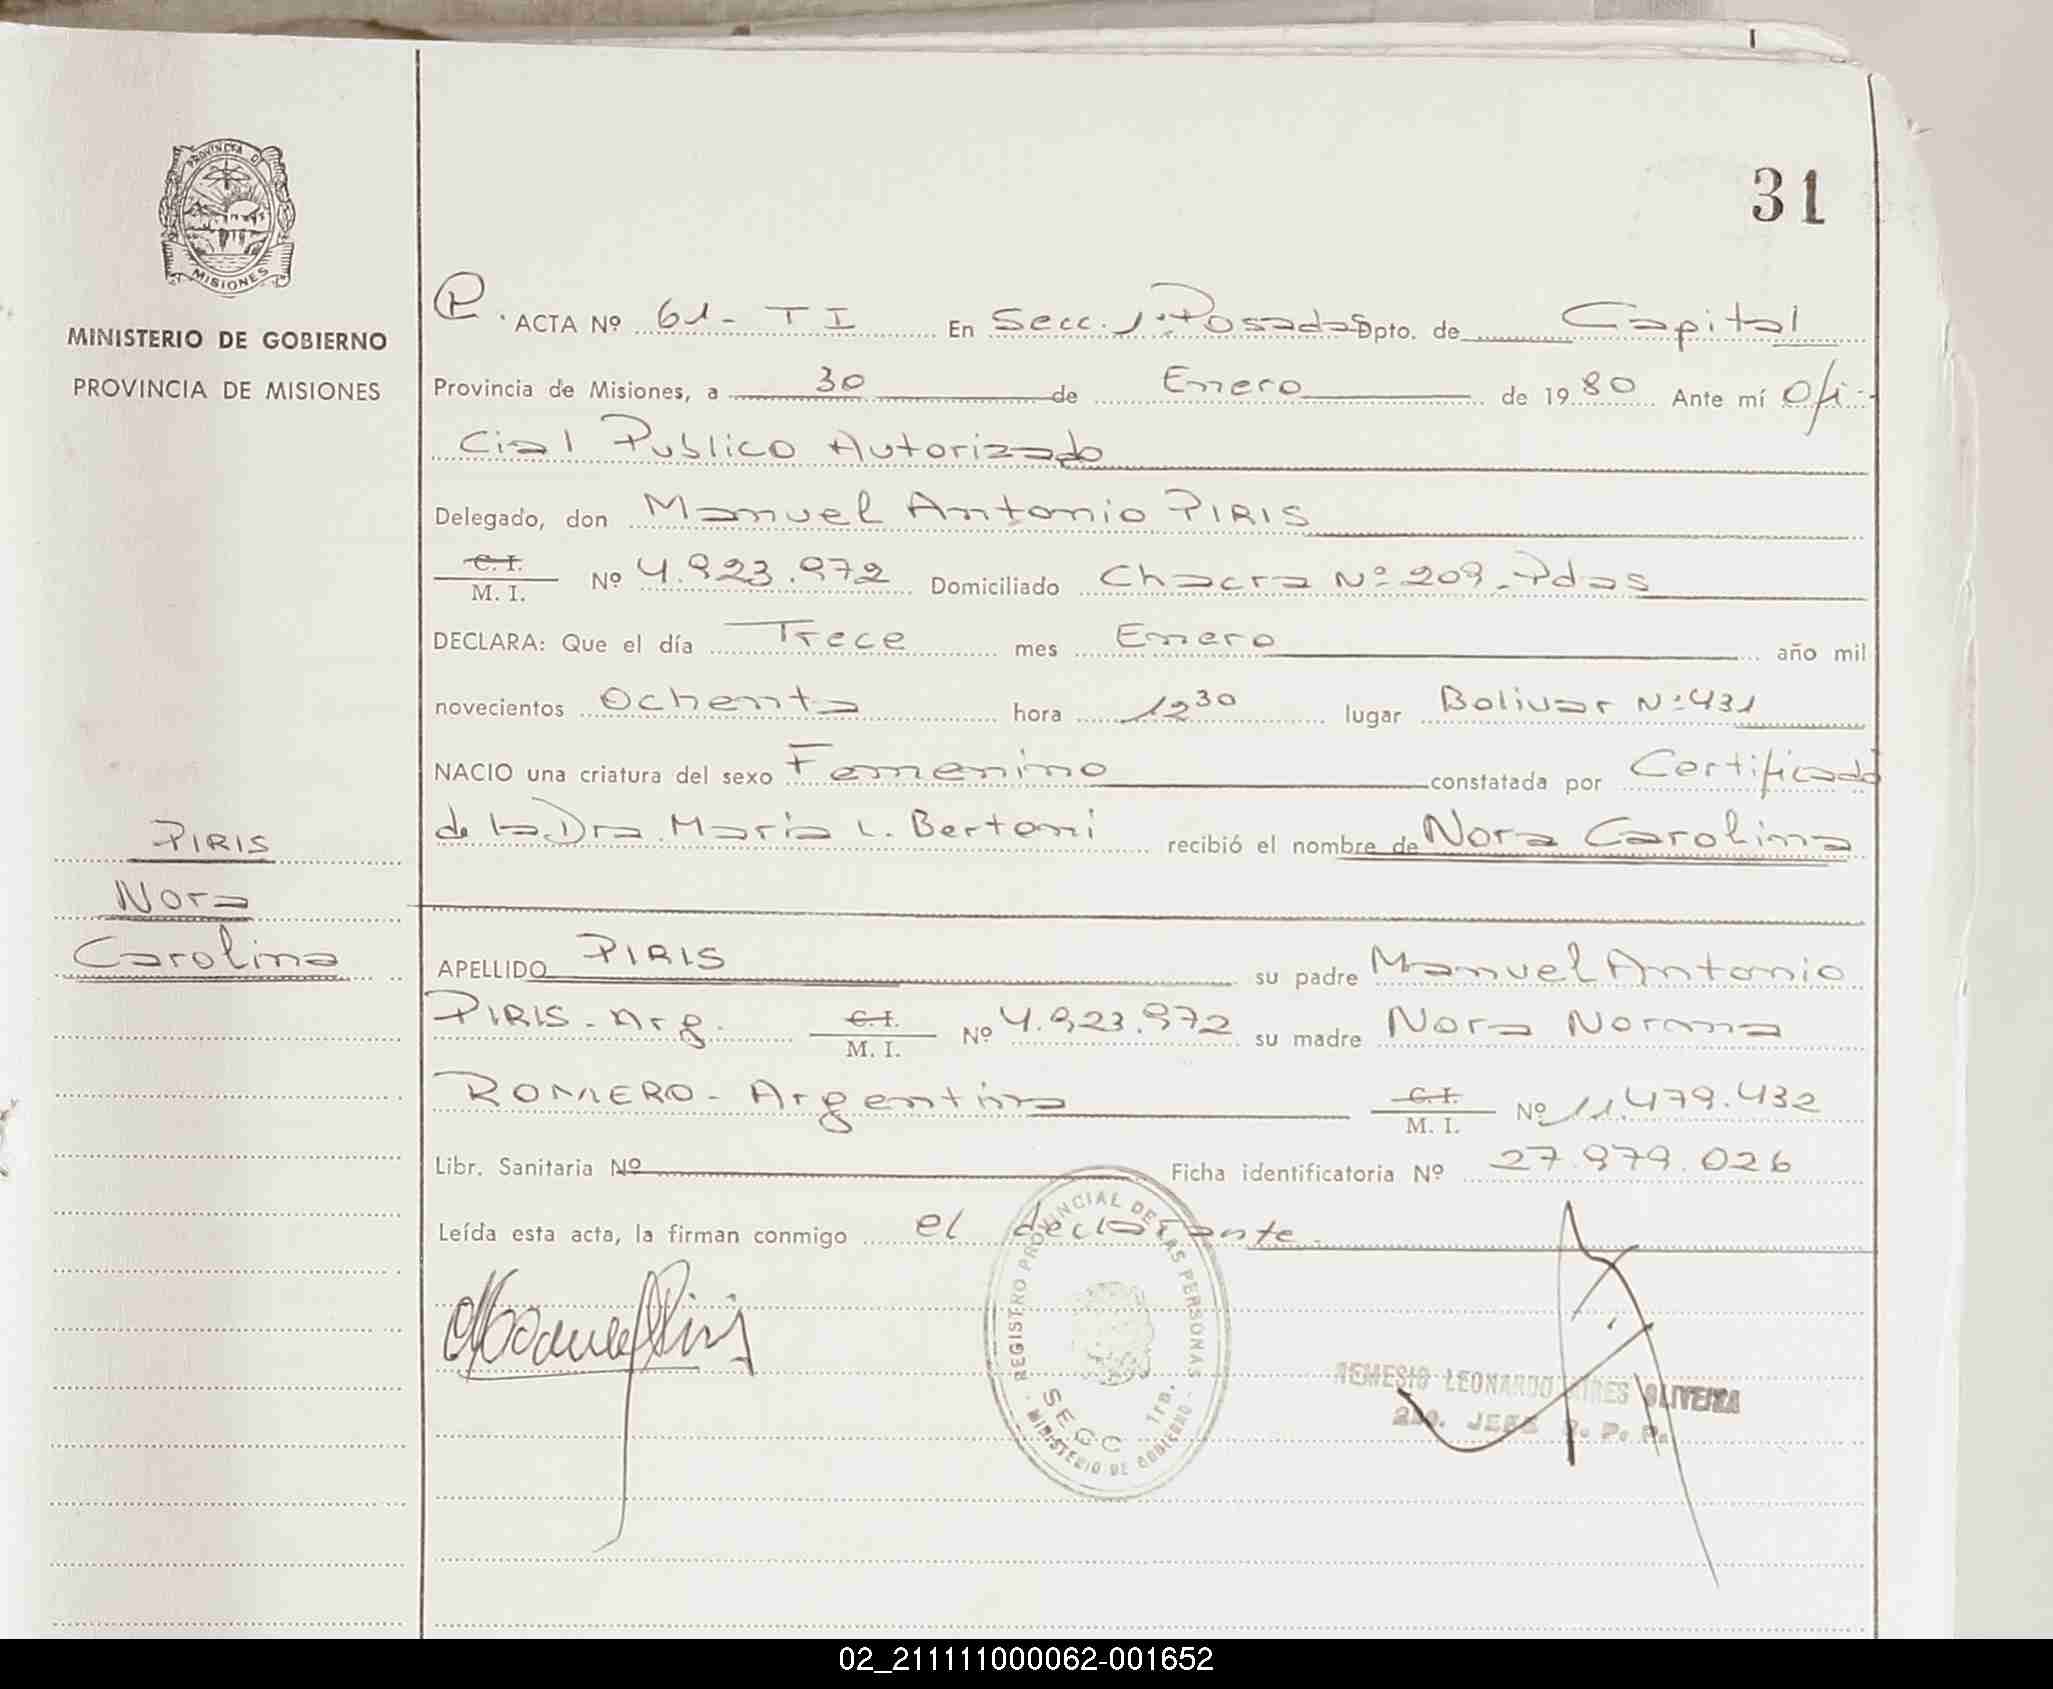 31
PROVINCIA DE
MISIONES
MINISTERIO DE GOBIERNO
PROVINCIA DE MISIONES
P. ACTA Nº 61- T I En Secc. 1ª Posadas Dpto. de Capital
Provincia de Misiones, a 30 de Enero de 1980 Ante mí Ofi-
cial Publico Autorizado
Delegado, don Manuel Antonio PIRIS
C. I.
M. I. Nº 4.923.972 Domiciliado Chacra Nº 209-Pdas
DECLARA: Que el día Trece mes Enero año mil
novecientos Ochenta hora 12 30 lugar Bolivar Nº 431
NACIO una criatura del sexo Femenino constatada por Certificado
de la Dra. Maria L. Bertoni recibió el nombre de Nora Carolina
PIRIS
Nora
Carolina
APELLIDO PIRIS su padre Manuel Antonio
PIRIS - Arg. C. I.
M. I. Nº 4.923.972 su madre Nora Norma
ROMERO - Argentina C. I.
M. I. Nº 11.479.432
Libr. Sanitaria Nº Ficha identificatoria Nº 27.979.026
Leída esta acta, la firman conmigo el declarante.
Manuel Piris
REGISTRO PROVINCIAL DE LAS PERSONAS
SECC 1ra.
MINISTERIO DE GOBIERNO
NEMESIO LEONARDO OLIVEIRA
2do. JEFE R. P. P.
02_211111000062-001652